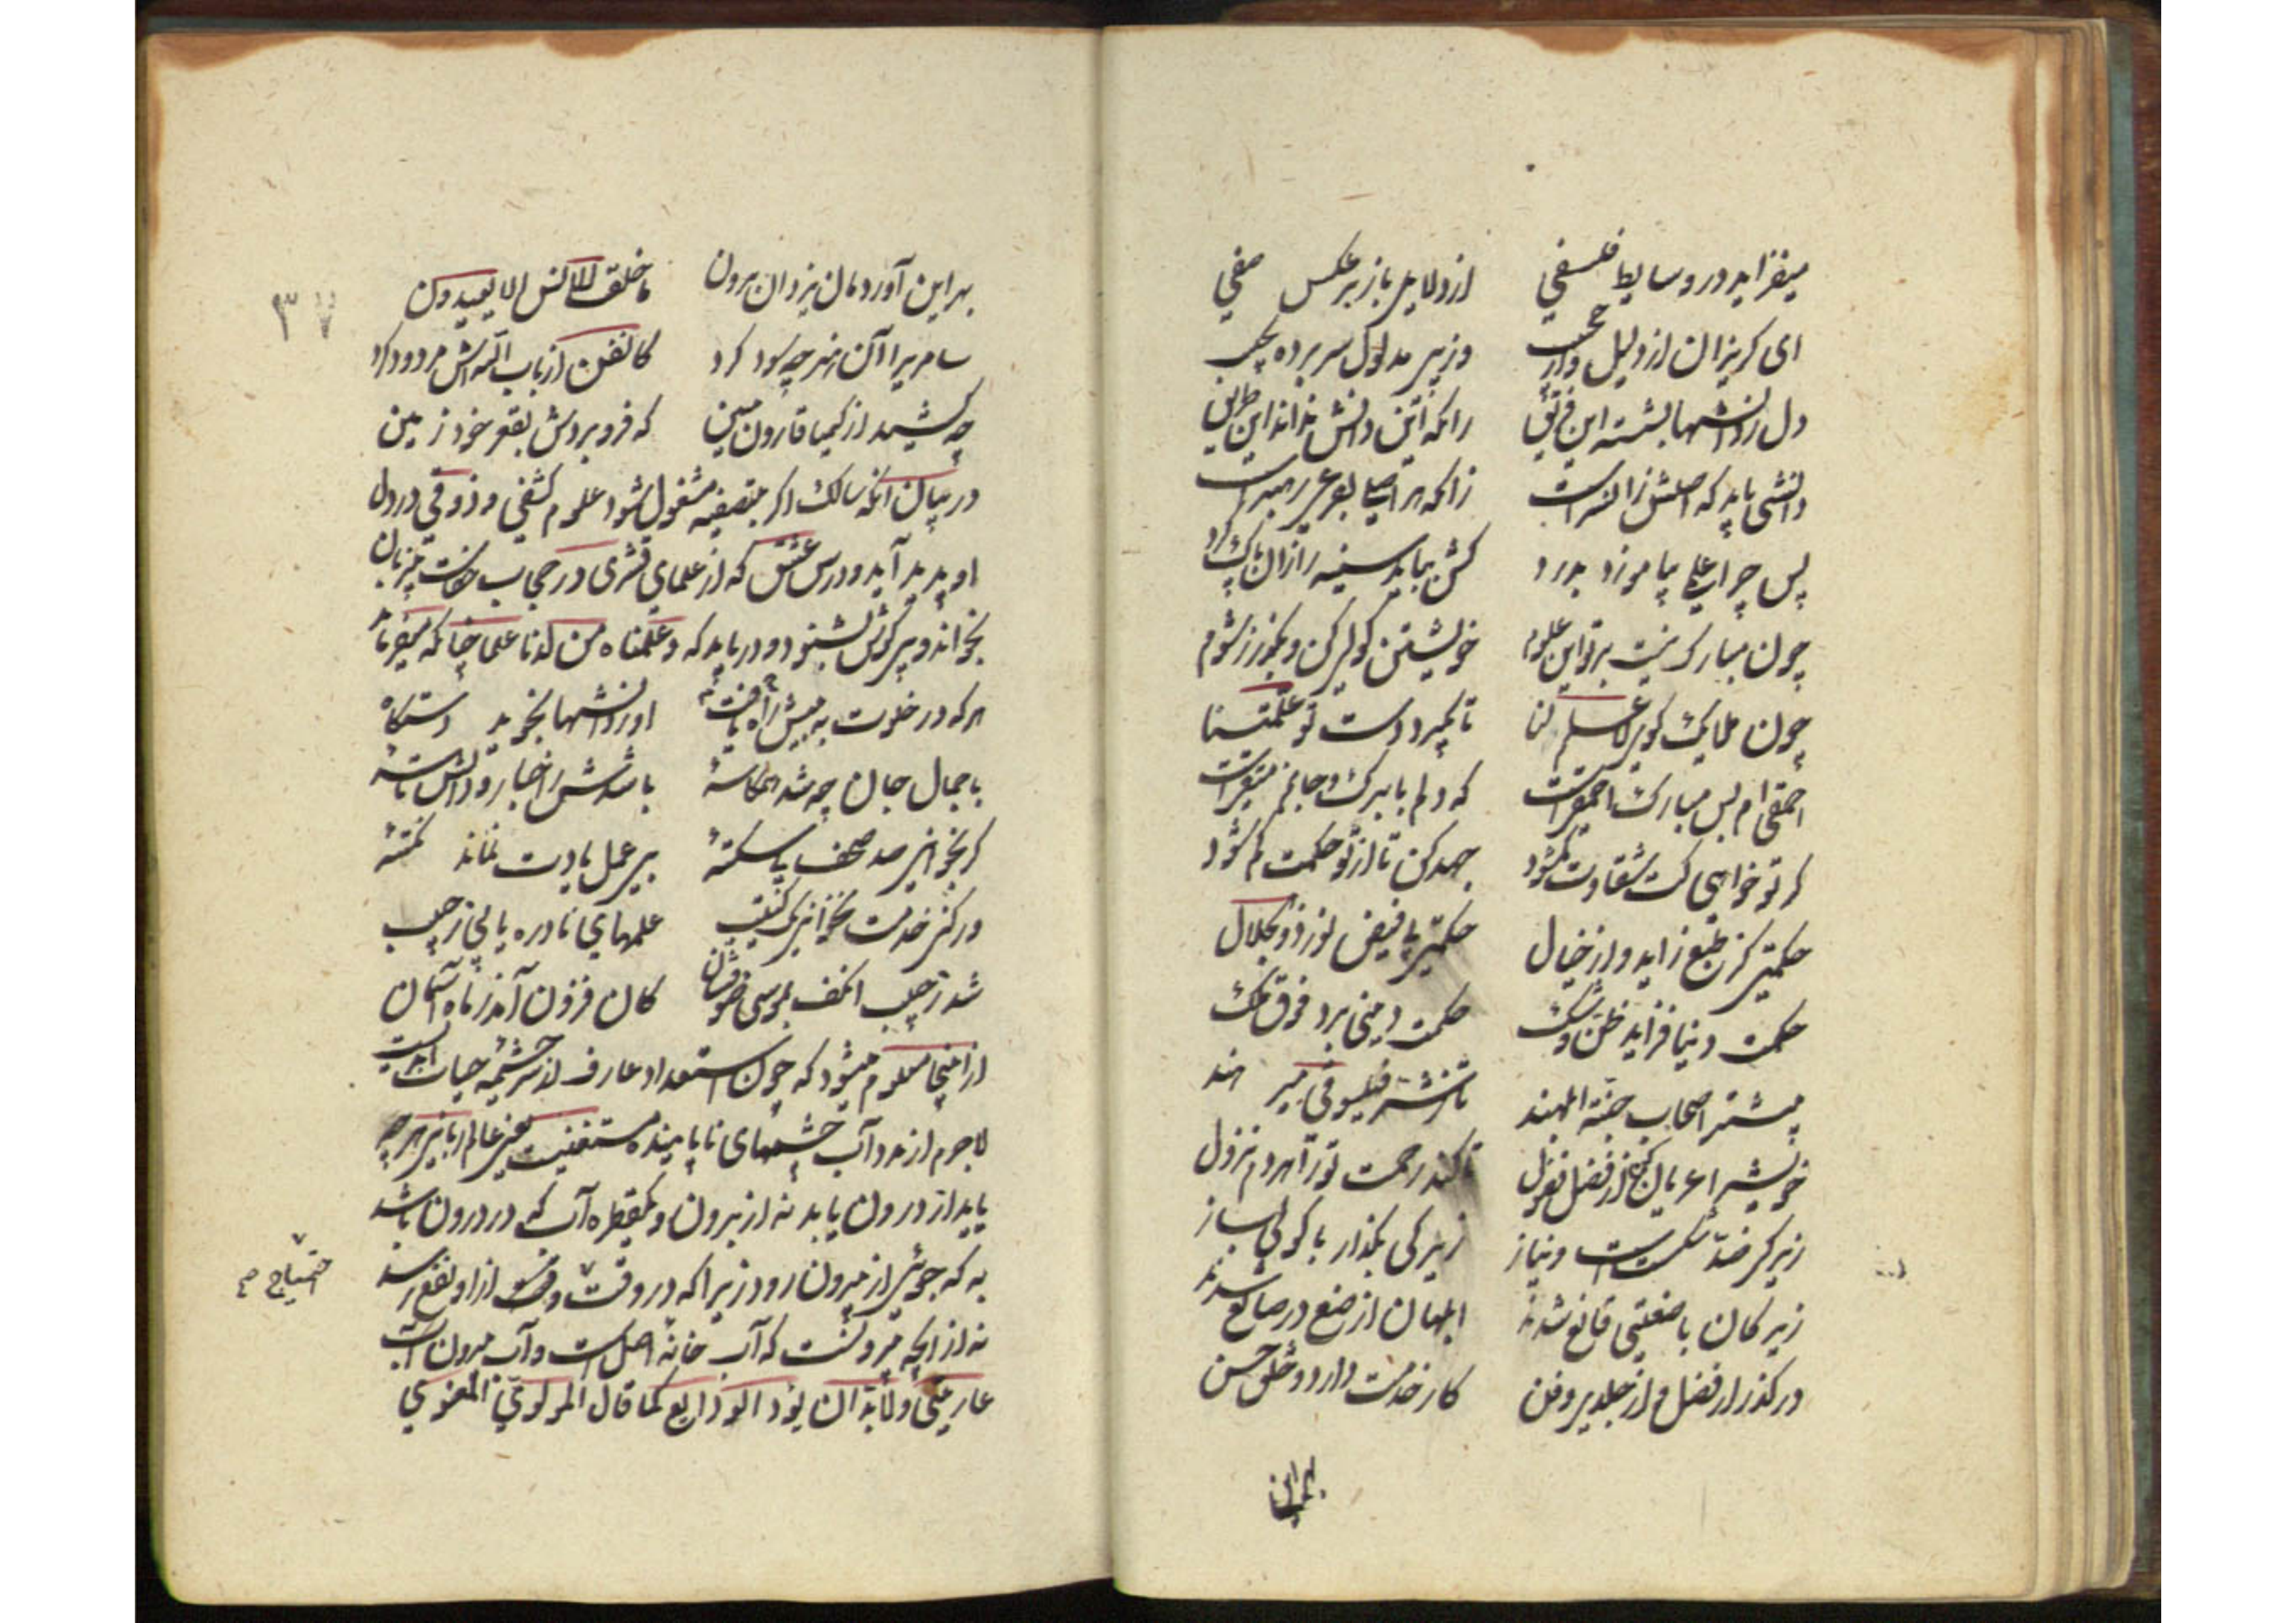 میفزاید در وسایط فلسفی از دلایل باز بر عکس صفی
ای کریزان از دلیل و از حجیب وز پی مدلول سر برده بجیب
دل ز دانشها بشسته این فریق زانکه این دانش نداند این طریق
دانشی باید که اصلش زان سرست زانکه هر اصلی بفرعی رهبرست
پس چرا علمی بیاموزد بمرد کش بباید سینه را زان پاک کرد
چون مبارک نیست بر تو این علوم خویشتن کولی کن و بکذر ز شوم
چون ملایک کوی لا علم لنا تا بکیرد دست تو علمتنا
احمقی ام بس مبارک احمقیست که دلم با برک و جانم متقیست
کر تو خواهی کت شقاوت کم شود جهد کن تا از تو حکمت کم شود
حکمتی کز طبع زاید وز خیال حکمتی بی فیض نور ذو الجلال
حکمت دنیا فزاید ظن و شک حکمت دینی برد فوق فلک
بیشتر اصحاب جنة ابلهند تا ز شر فیلسوفی میرهند
خویش را عریان کن از فضل و فضول تا کند رحمت تو را هر دم نزول
زیرکی ضد شکست است و نیاز زیرکی بکذار با کولی بساز
زیرکان با صنعتی قانع شدند ابلهان از صنع در صانع شدند
در کذر از فضل و از جلدی و فن کار خدمت دارد و خلق حسن
بهر این
۳۷
بهر این آوردمان یزدان برون ما خلقت الانس الا لیعبدون
سامری را آن هنر چه سود کرد کان فن از باب اللهش مردود کرد
چه کشید از کیمیا قارون ببین که فرو بردش بقعر خود زمین
در بیان انکه سالک اکر بتصفیه مشغول شود علوم کشفی و ذوقی در دل
او پدید آید و درس عشق که از علمای قشری در حجاب است بیزبان
بخواند و بی کوش بشنود و دریابد که و علمناه من لدنا علما چنانکه میفرماید
هر که در خلوت به بینش یافت راه او ز دانشها نجوید دستکاه
با جمال جان چه شد همکاسهٔ باشدش ز اخبار و دانش تاسهٔ
کر بخوانی صد صحف بی سکتهٔ بی عمل یادت نماند نکتهٔ
ور کنی خدمت نخوانی یک کتیب علمهای نادره یابی ز جیب
شد ز جیب آن کف موسی ضو فشان کان فزون آمد ز ماه آسمان
از اینجا معلوم میشود که چون استعداد عارف از سرچشمه حیات ابدیست
لاجرم از مدد آب چشمهای ناپاینده مستغنیست یعنی عالم ربانی هر چه
یابد از درون یابد نه از بیرون و یکقطره آب که در درون باشد
به که جویی از بیرون رود زیرا که در وقت از او نفع رسد
احتیاج صح
نه از انچه بیرونست که آب خانه اصل است و آب بیرون است
عاریتی ولابد ان یؤد الودایع کما قال المولوی المعنوی